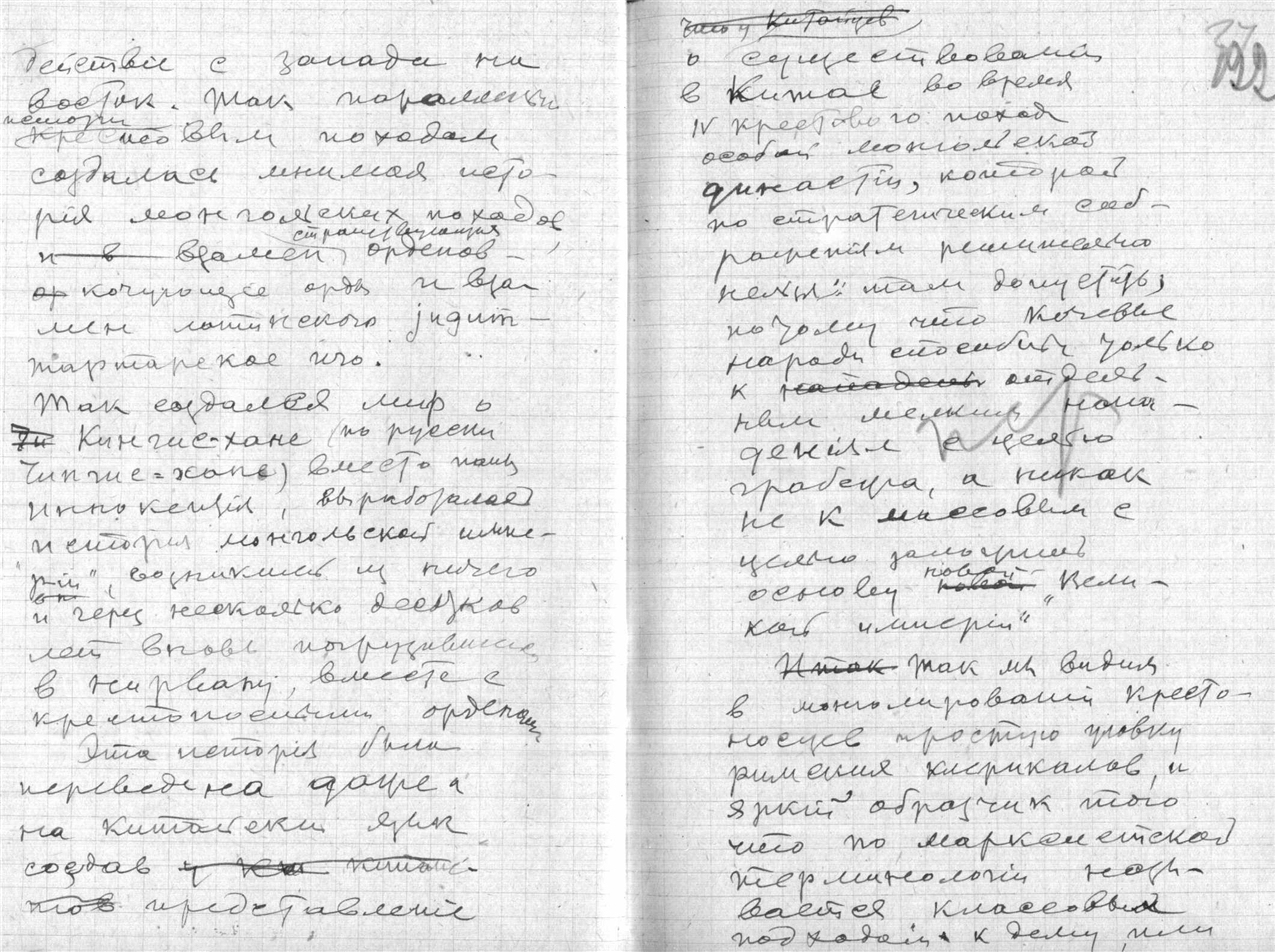 действіе с запада на
восток. Так параллельно
исторіи
крестовым походам
создалась мнимая исто-
рія монгольских походов,
странствующих
и в взамен орденов-
ор кочующіе орды и вза-
мен латинского јидит-
тартарское иго.
Так создался миф о
Кингис-хане (по русски
Чингис=хане) вместо папы
Иннокентія, выработалась
исторія монгольской импе-
"ріи", возникшей из ничего
и через несколько десятков
лет вновь погрузившейся
в нирвану, вместе с
крестоносными орденами
Эта исторія была
переведена даже и
на китайскій язык
создав у китайс-
цов представленіе
что у Китайцев
о существованіи
в Китае во время
IV крестового похода
особой монгольской
династіи, которой
по стратегическим сооб-
раженіям решительно
нельзя там допустить,
потому что кочевые
народы способны только
к нападенью отдель-
ным мелким напа-
деніям с целью
грабежа, а никак
не к массовым с
целью заложить
новой
основу новой "Вели-
кой имперіи"
Итак Так мы видим
в монголированіи кресто-
носцев простую уловку
римских клерикалов, и
яркій образчик того
что по марксистской
терминологіи назы-
вается классовым
подходом к делу или
392